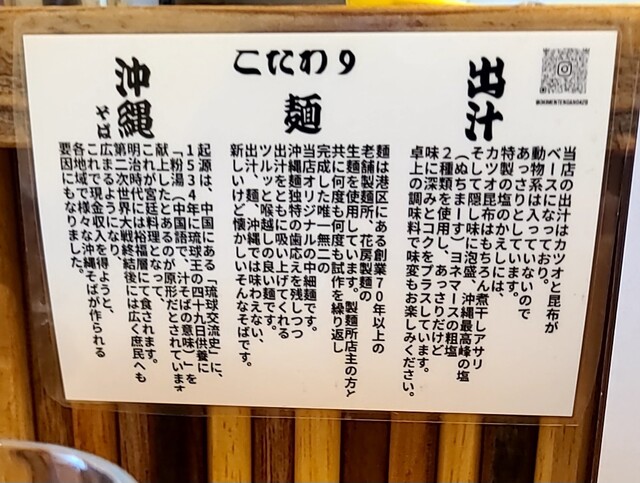 こだわり
出汁
当店の出汁はカツオと昆布が
ベースになっており。
動物系は入っていないので
あっさりとしています。
特製の塩のかえしには、
カツオ昆布はもちろん煮干しアサリ
そして隠し味に泡盛、沖縄最高峰の塩
(ぬちまーす)ヨネマースの粗塩
2種類を使用し、あっさりだけど
味に深みとコクをプラスしています。
卓上の調味料で味変もお楽しみください。
麺
麺は港区にある創業70年以上の
老舗製麺所、花房製麺の
生麺を使用しています。製麺所店主の方と
共に何度も何度も試作を繰り返し
完成した唯一無二の
当店オリジナルの中細麺です。
沖縄麺独特の歯応えを残しつつ
出汁をともに吸い上げてくれる
ツルッと喉越しの良い麺です。
出汁、麺、沖縄では味わえない、
新しいけど懐かしいそんなそばです。
沖縄そば
起源は、中国にある「琉球交流史」に、
1534年に琉球王の四十九日供養に
「粉湯(中国語で、汁そばの意味)」を
献上したとあるのが原形だとされています
これが宮廷料理となって、
明治時代には裕福層にて食されます。
第二次世界大戦終結後には広く庶民へも
広まるようになり、
これで現金収入を得ようと、
各地域で様々な沖縄そばが作られる
要因にもなりました。